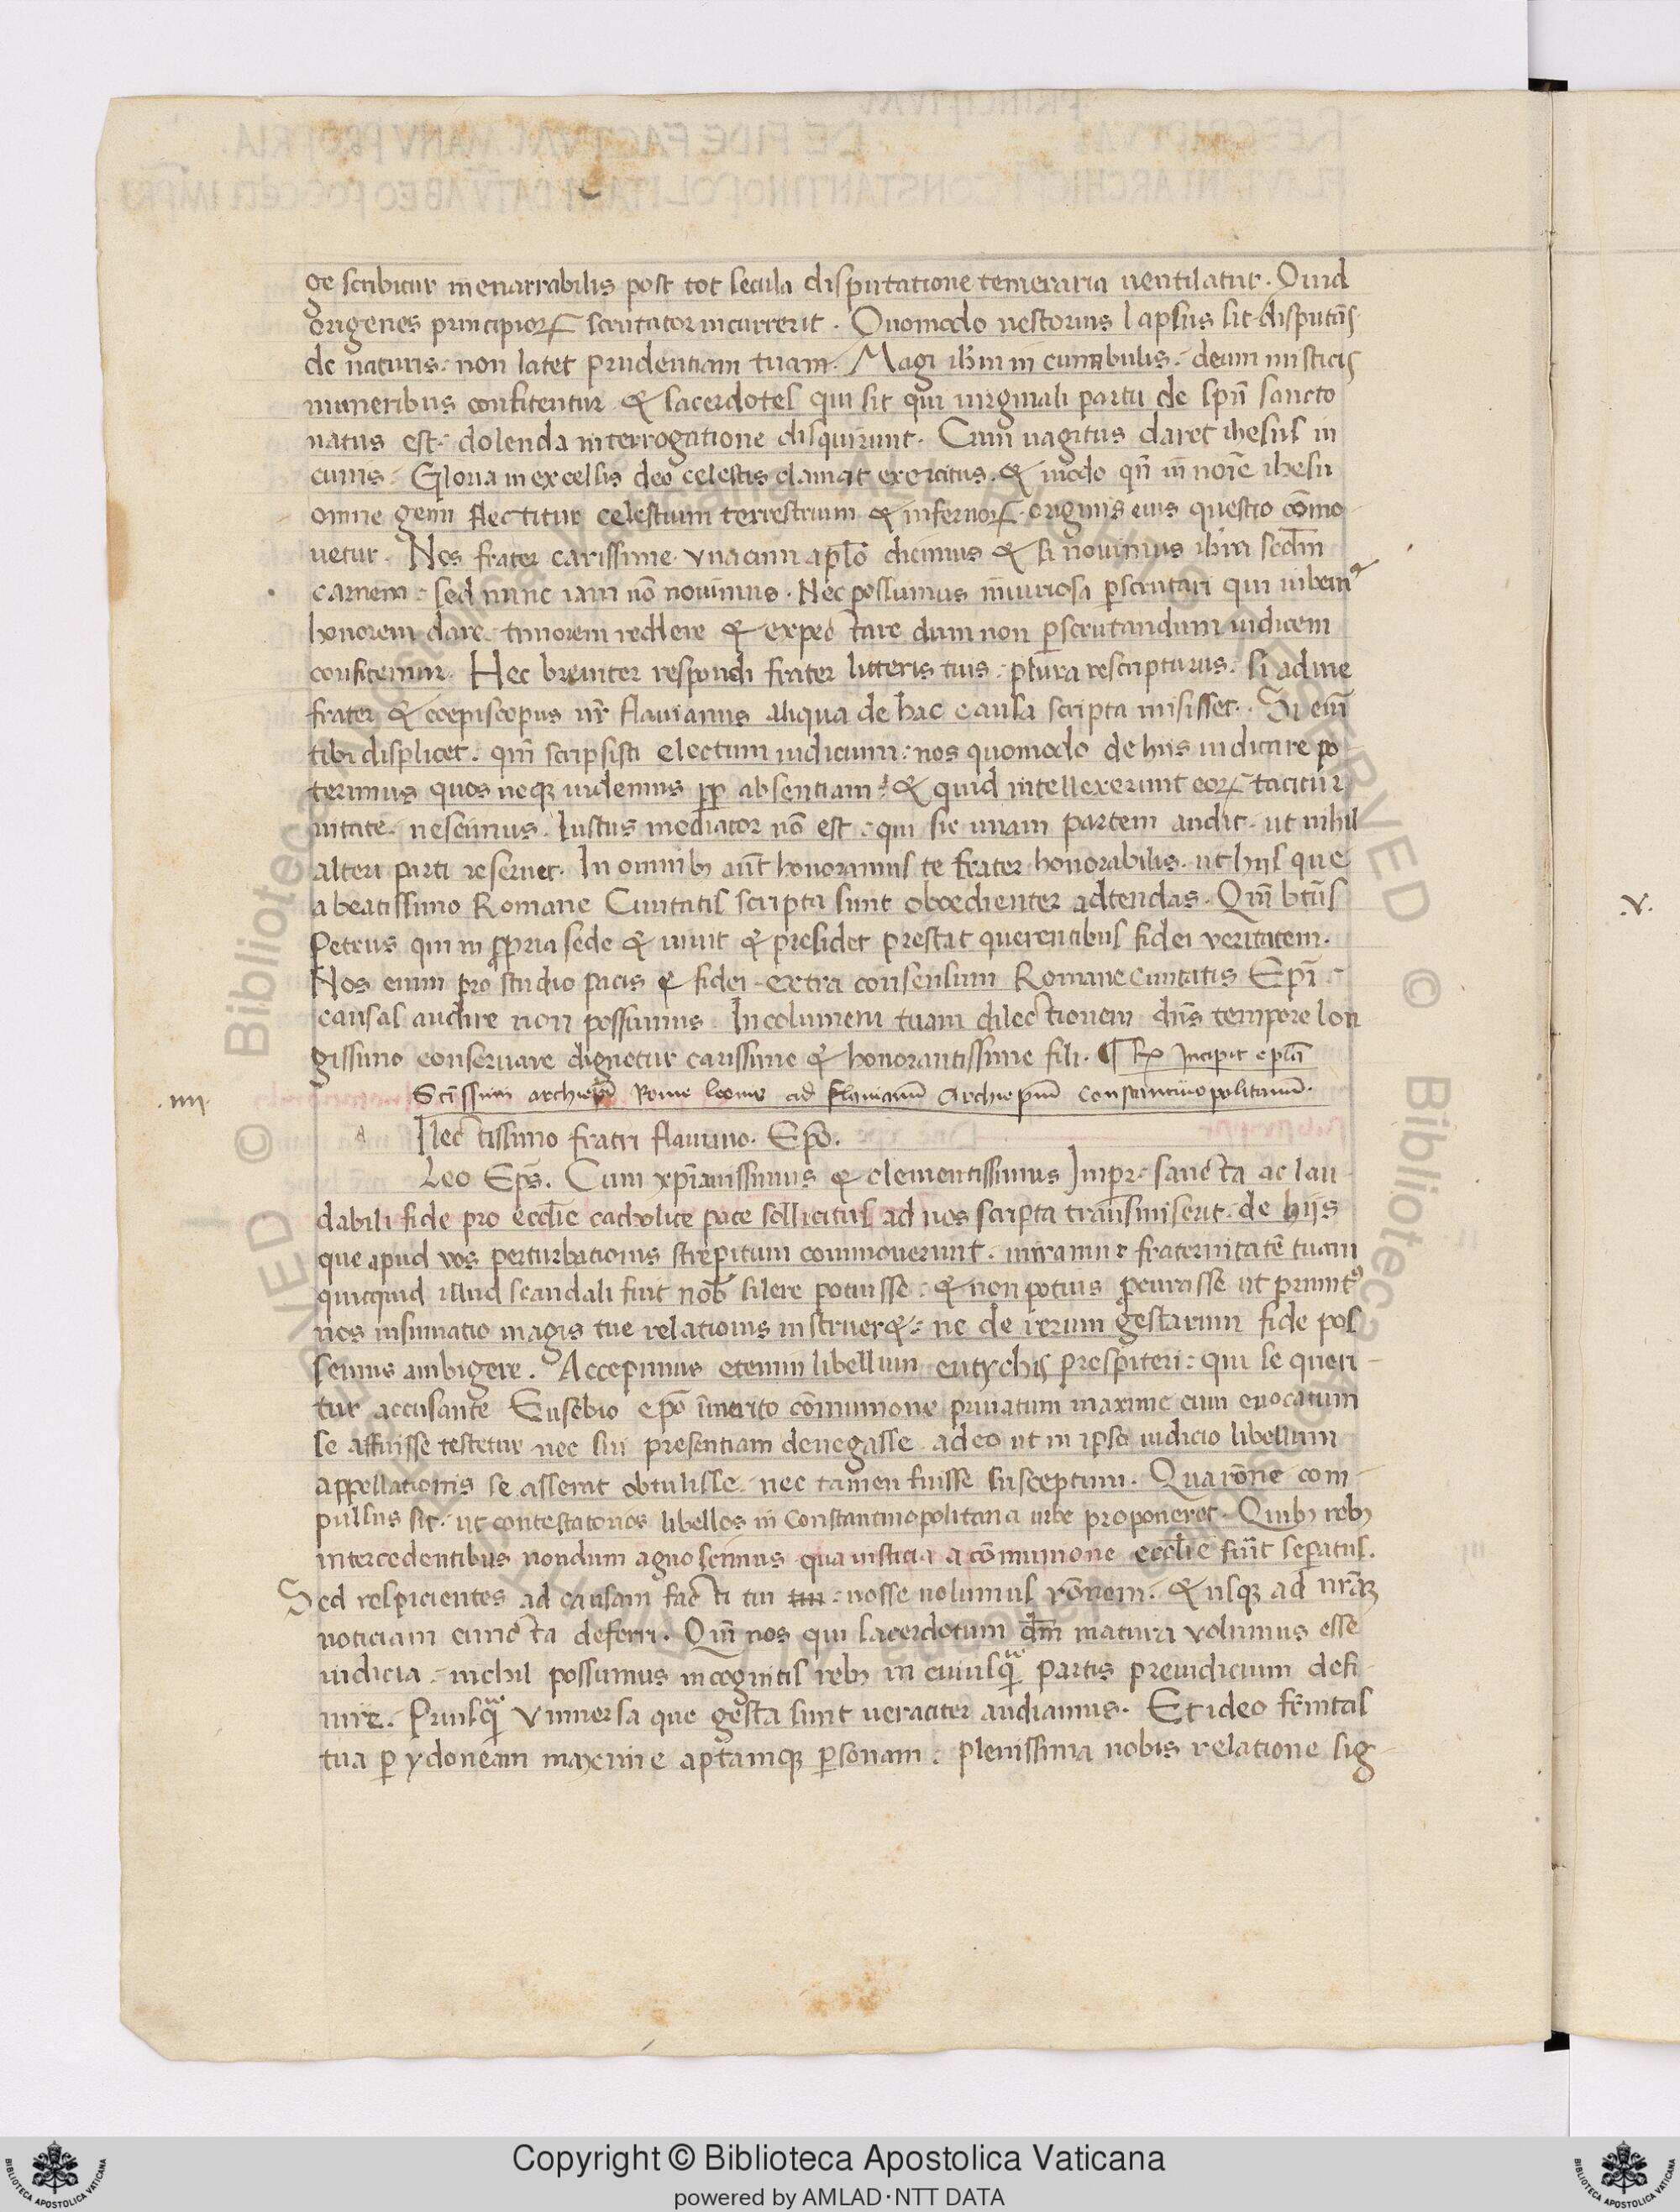 ge scribitur inenarrabilis post tot secula disputatione temeraria uentilatur. Quid
origenes principioꝝ scrutator incurrerit. Quomodo nestorius lapsus sit disputās
de naturis: non latet prudentiam tuam. Magi ih̄m in cunabulis: deum misticis
muneribus confitentur & sacerdotes qui sit qui uirginali partu de sp̄u sancto
natus est: dolenda interrogatione disquirunt. Cum uagitus daret ihesus in
cunis: Gloria in excelsis deo celestis clamat exercitus. & modo qn̄ in noīe ihesu
omne genu flectitur celestium terrestrium & infernoꝝ originis eius questio cōmo-
uetur. Nos frater carissime vna cum aplō dicimus & si nouimus ih̄m sed̄m
carnem: sed nunc iam nō nouimus. Nec possumus iniuriosa ꝑscrutari qui iubemꝰ
honorem dare timorem reddere & expectare dum non ꝑscrutandum iudicem
confitemur. Hec breuiter respondi frater litteris tuis: plura rescripturus: si ad me
frater & coepiscopus nr̄ flauianus aliqua de hac causa scripta misisset. Si eni̅
tibi displicet: qm̄ scripsisti electum iudicium: nos quomodo de hiis iudicare po-
terimus quos neqꝫ uidemus ꝓp absentiam: & quid intellexerunt eoꝝ tacitur
nitate nescimus. Iustus mediator nō est: qui sic unam partem audit. ut nihil
alteri parti reseruet. In omnibꝫ aūt honoramus te frater honorabilis. ut hiis que
a beatissimo Romane Ciuitatis scripta sunt oboedienter adtendas. Qm̄ btūs
Petrus qui in ꝓpria sede & uiuit & presidet prestat querentibus fidei veritatem.
Nos enim pro studio pacis & fidei extra consensum Romane ciuitatis Epī:
causas audire non possumus. Incolumem tuam dilectionem dn̄s tempore lon
gissimo conseruare dignetur carissime & honorantissime fili. ¶ Incipit eplā
.IIII.
Sc̄issimi archiepī Rome leonis ad flauianū Archiepm̄ constantinopolitanū.
d Ilectissimo fratri flauiano. Epō.
Leo Eps̄. Cum xp̄ianissimus & clementissimus Impr̄: sancta ac lau-
dabili fide pro ecclie catholice pace sollicitus ad nos scripta transmiserit: de hijs
que apud vos perturbationis strepitum commouerunt. miramur fraternitatē tuam
quicquid illud scandali fuit nob̄ silere potuisse: & non potius ꝓcurasse ut primitꝰ
nos insinuatio magis tue relationis instruerꝫ: ne de rerum gestarum fide pos
semus ambigere. Accepimus etenim libellum eutychis prespiteri: qui se queri-
tur accusante Eusebio epō īmerito cōmunione priuatum maxime cum euocatum
se affuisse testetur nec sui presentiam denegasse adeo ut in ipso iudicio libellum
appellationis se asserat obtulisse. nec tamen fuisse susceptum. Qua rōne com-
pulsus sit: ut contestatorios libellos in Constantinopolitana urbe proponeret. Quibꝫ rebꝫ
intercedentibus nondum agnoscimus qua iusticia a cōmunione ecclie fuīt separatus.
Sed respicientes ad causam facti tui: nosse uolumus rōnem. & usqꝫ ad nrāꝫ
noticiam cuncta deferri. Qm̄ nos qui sacerdotum dm̄ matura volumus esse
iudicia: nichil possumus incognitis rebꝫ in cuiusqͣ partis preiudicium defi-
nire. Priusqͣ vniuersa que gesta sunt ueraciter audiamus. Et ideo fr̄nitas
tua ꝑ ydoneam maxime aptamqꝫ ꝑsonam: plenissima nobis relatione sig-
.V.
Copyright © Biblioteca Apostolica Vaticana
powered by AMLAD·NTT DATA